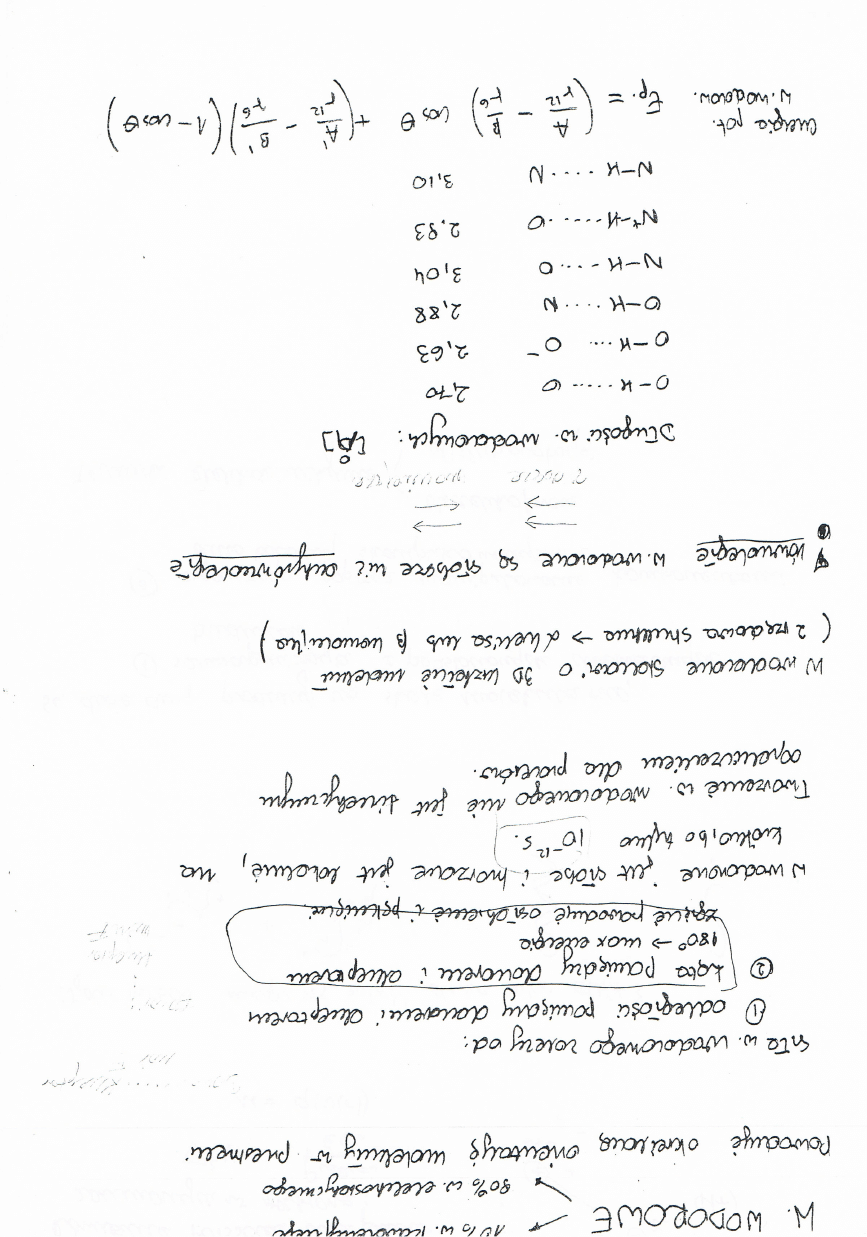 W. WODOROWE
10% w. kowalencyjnego
90% w. elektrostatycznego
Powoduje określoną orientację molekuły w przestrzeni
siła w. wodorowego zależy od:
① odległości pomiędzy donorem i akceptorem
② kąta pomiędzy donorem i akceptorem
180° → max energia
zgięcie powoduje osłabienie i pęknięcie.
W wodorowe jest słabe i tworzone jest lokalnie, na
krótko, bo tylko 10⁻¹² s.
Tworzenie w. wodorowego nie jest sterycznym
ograniczeniem dla procesów.
W wodorowe stanowi o 3D kształcie molekuł
(2 rzędowa struktura → α helisa lub β harmonijka)
równoległe w. wodorowe są słabsze niż antyrównoległe
Długości w. wodorowych: [Å]
O–H ····· O 2,70
O–H ···· O⁻ 2,63
O–H ···· N 2,88
N–H ···· O 3,04
N⁺–H ······ O 2,93
N–H ····· N 3,10
energia pot. w. wodorow. Ep. = (A/r¹² − B/r⁶) cos θ + (A'/r¹² − B'/r⁶)(1 − cos θ)